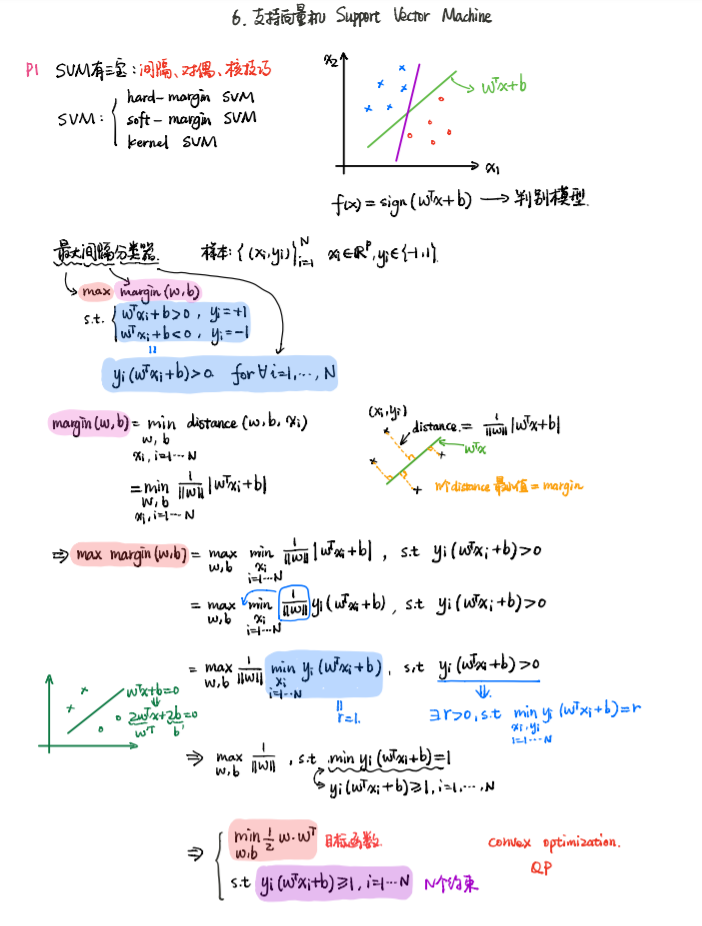 6. 支持向量机 Support Vector Machine
P1 SVM有三宝：间隔、对偶、核技巧
SVM: { hard-margin SVM
soft-margin SVM
kernel SVM
x₂
wᵀx+b
x₁
f(x) = sign(wᵀx+b) → 判别模型.
最大间隔分类器.
样本: {(xᵢ,yᵢ)}ᵢ₌₁ᴺ xᵢ∈ℝᵖ, yᵢ∈{-1,1}
max margin(w,b)
s.t. { wᵀxᵢ+b>0, yᵢ=+1
wᵀxᵢ+b<0, yᵢ=-1
=
yᵢ(wᵀxᵢ+b)>0 for ∀i=1,…,N
margin(w,b) = min distance(w,b,xᵢ)
w,b
xᵢ,i=1…N
= min 1/||w|| |wᵀxᵢ+b|
w,b
xᵢ,i=1…N
(xᵢ,yᵢ)
distance = 1/||w|| |wᵀx+b|
wᵀx
n个distance 最小值 = margin
⇒ max margin(w,b) = max min 1/||w|| |wᵀxᵢ+b|, s.t yᵢ(wᵀxᵢ+b)>0
w,b xᵢ
i=1…N
= max min 1/||w|| yᵢ(wᵀxᵢ+b), s.t yᵢ(wᵀxᵢ+b)>0
w,b xᵢ
i=1…N
= max 1/||w|| min yᵢ(wᵀxᵢ+b), s.t yᵢ(wᵀxᵢ+b)>0
w,b xᵢ
i=1…N
=
r=1.
⇓
∃r>0, s.t min yᵢ(wᵀxᵢ+b)=r
xᵢ,yᵢ
i=1…N
wᵀx+b=0
2wᵀx+2b=0
wᵀ b'
⇒ max 1/||w||, s.t min yᵢ(wᵀxᵢ+b)=1
w,b
yᵢ(wᵀxᵢ+b)≥1, i=1,…,N
⇒ { min 1/2 w·wᵀ 目标函数
w,b
s.t yᵢ(wᵀxᵢ+b)≥1, i=1…N N个约束
convex optimization.
QP